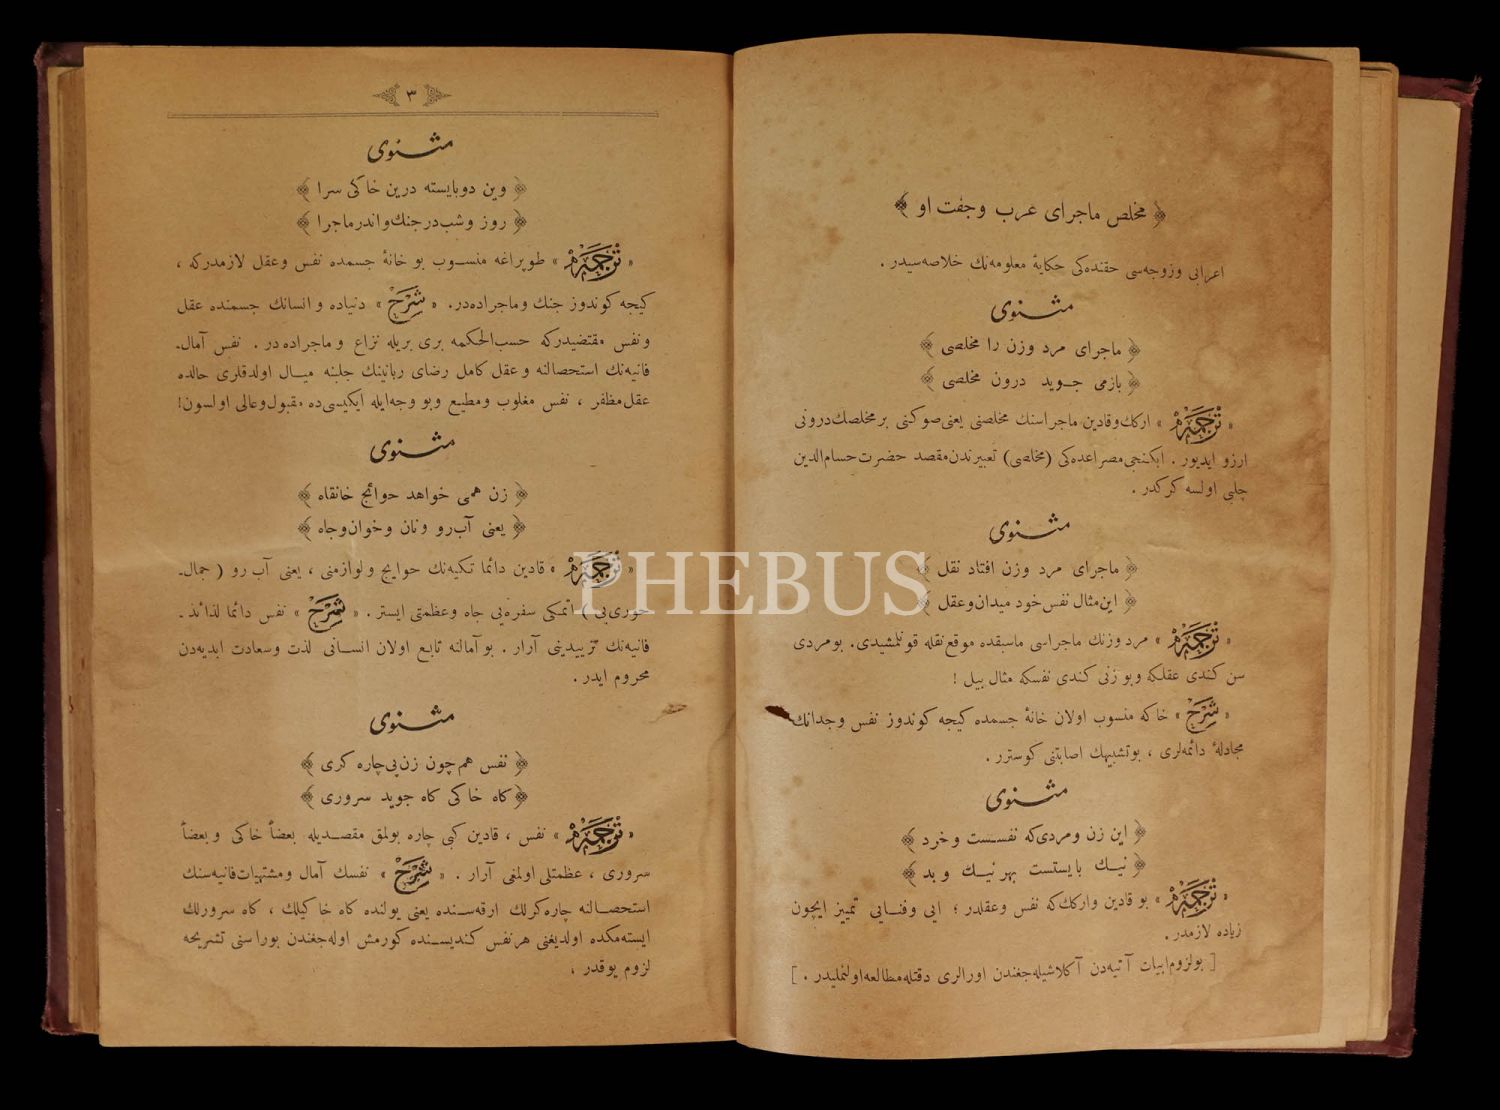 ﴿ مخلص ماجرای عرب وجفت او ﴾
اعرابی وزوجه‌سی حقنده‌کی حکایهٔ معلومه‌نك خلاصه‌سیدر .
مثنوی
﴿ ماجرای مرد وزن را مخلصی ﴾
﴿ بازمی جـوید درون مخلصی ﴾
« ترجمه » ارکك وقادین ماجراسنك مخلصنی یعنی صوکنی بر مخلصك درونی
ارزو ایدیور . ایکنجی مصراعده‌کی (مخلصی) تعبیرندن مقصد حضرت حسام‌الدین
چلبی اولسه کرکدر .
مثنوی
﴿ ماجرای مرد وزن افتاد نقل ﴾
﴿ این مثال نفس خود میدان وعقل ﴾
« ترجمه » مرد وزنك ماجراسی ماسبقده موقع نقله قونلمشیدی. بومردی
سن کندی عقلکه وبو زنی کندی نفسکه مثال بیل !
« شرح » خاکه منسوب اولان خانهٔ جسمده کیجه کوندوز نفس وجدانك
مجادلهٔ دائمه‌لری ، بوتشبیهك اصابتنی کوسترر .
مثنوی
﴿ این زن ومردی که نفسست وخرد ﴾
﴿ نیـك بایستست بهر نیـك وبد ﴾
« ترجمه » بو قادین وارکك که نفس وعقلدر ؛ ایی وفنـایی تمییز ایچون
زیاده لازمدر.
[ بولزوم ابیات آتیه‌دن آکلاشیله‌جغندن اورالری دقتله مطالعه اولنملیدر . ]
٣
مثنوی
﴿ وین دوبایسته درین خاکی سرا ﴾
﴿ روز وشب درجنك واندر ماجرا ﴾
« ترجمه » طوپراغه منسـوب بو خانهٔ جسمده نفس وعقل لازمدرکه ،
کیجه کوندوز جنك وماجراده‌در. « شرح » دنیاده وانسانك جسمنده عقل
ونفس مقتضیدرکه حسب‌الحکمه بری بریله نزاع وماجراده‌در . نفس آمال‌ـ
فانیه‌نك استحصالنه وعقل کامل رضای ربانینك جلبنه میـال اولدقلری حالده
عقل مظفر ، نفس مغلوب ومطیع وبو وجه‌ایله ایکیسی‌ده مقبول وعالی اولسون!
مثنوی
﴿ زن همی خواهد حوائج خانقاه ﴾
﴿ یعنی آب رو ونان وخوان وجاه ﴾
« ترجمه » قادین دائما تکیه‌نك حوایج ولوازمنی ، یعنی آب رو ( جمال‌ـ
اتمکی سفره‌یی جاه وعظمتی ایستر . « شرح » نفس دائما لذائذ‌ـ
فانیه‌نك تزییدینی آرار . بو آمالنه تابع اولان انسـانی لذت وسعادت ابدیه‌دن
محروم ایدر .
مثنوی
﴿ نفس همچون زن پی چاره کری ﴾
﴿ کاه خاکی کاه جوید سروری ﴾
« ترجمه » نفس ، قادین کبی چاره بولمق مقصـدیله بعضاً خاکی وبعضاً
سروری ، عظمتلی اولمغی آرار . « شرح » نفسك آمال ومشتهیات فانیه‌سنك
استحصـالنه چاره‌کرلك ارقه‌سـنده یعنی یولنده کاه خاکیلك ، کاه سرورلك
ایسته‌مکده اولدیغنی هر نفس کندیسـنده کورمش اوله‌جغندن بوراسنی تشریحه
لزوم یوقدر ،
PHEBUS